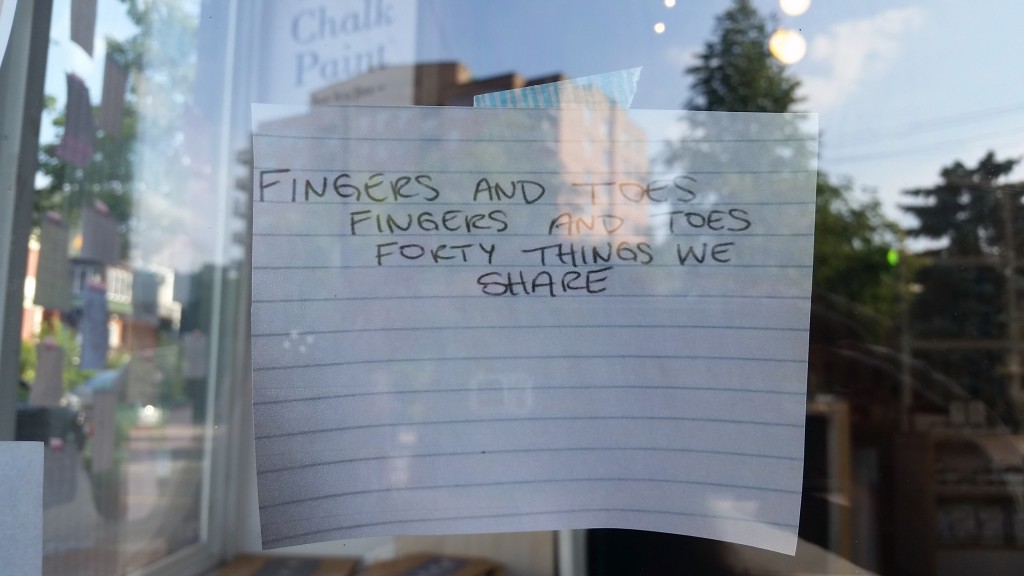 Chalk
Paint
FINGERS AND TOES
FINGERS AND TOES
FORTY THINGS WE
SHARE